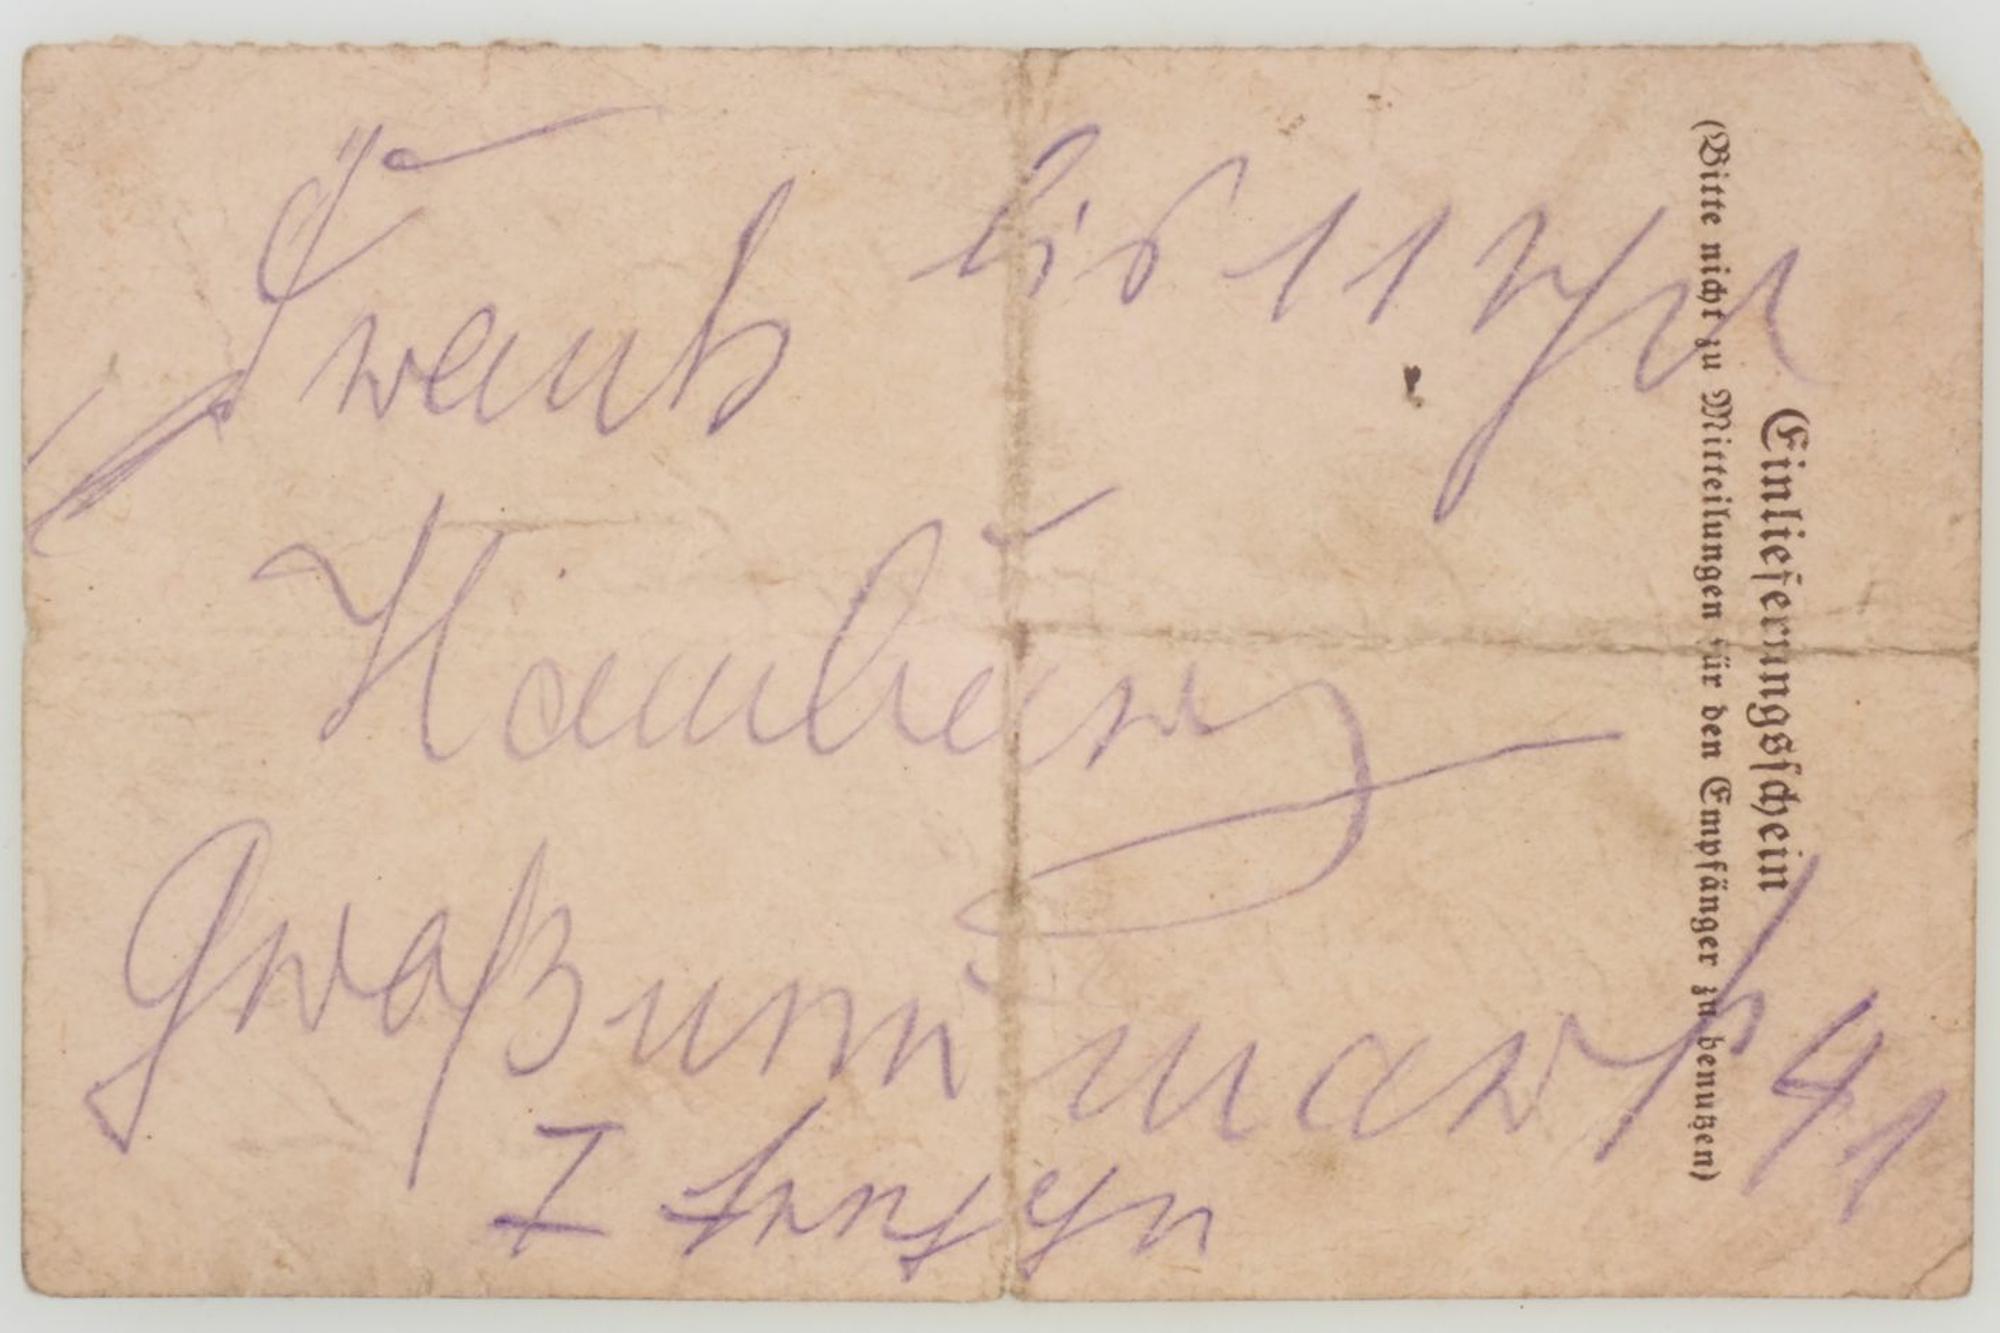 bis 11 Uhr
Hamburg
Großneumarkt 41
I
Einlieferungsschein
(Bitte nicht zu Mitteilungen für den Empfänger zu benutzen)